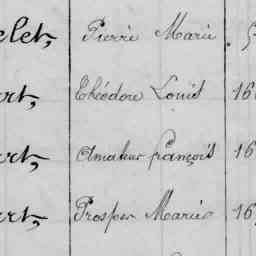 elet, Pierre Marie
ert, Théodore Louis 16
ert, Amateur françois 16
ert, Prosper Marie 16